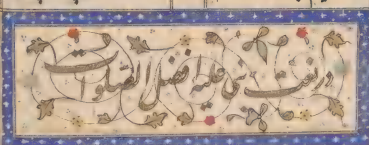 در نعت نبی علیه افضل الصلوات